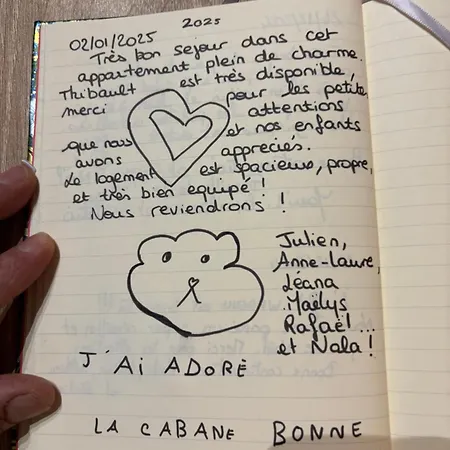 2025
02/01/2025
Très bon sejour dans cet
appartement plein de charme.
Thibault est très disponible,
merci pour les petites
attentions
que nous et nos enfants
avons appreciés.
Le logement est spacieux, propre,
et très bien equipé !
Nous reviendrons !
Julien,
Anne-Laure,
Léana
Maëlys
Rafaël...
et Nala !
J'Ai ADORÉ
LA CABANE BONNE